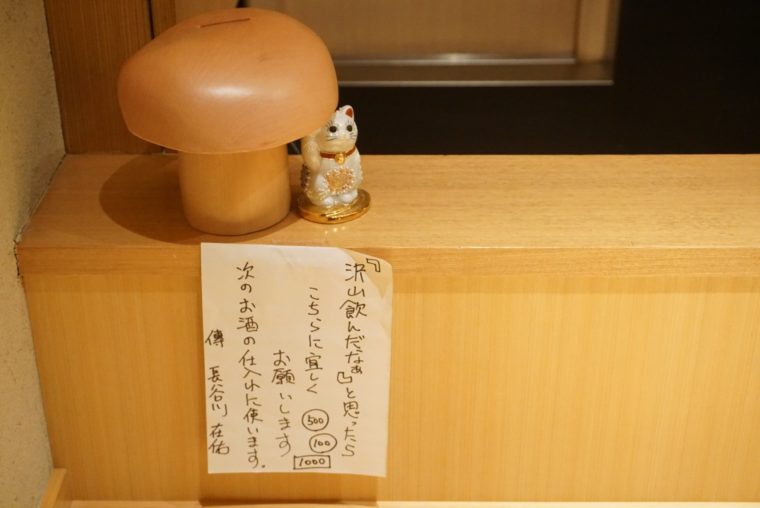 『沢山飲んだなぁ』と思ったら
こちらに宜しく
お願いします
500
100
1000
次のお酒の仕入れに使います。
傳 長谷川 在佑